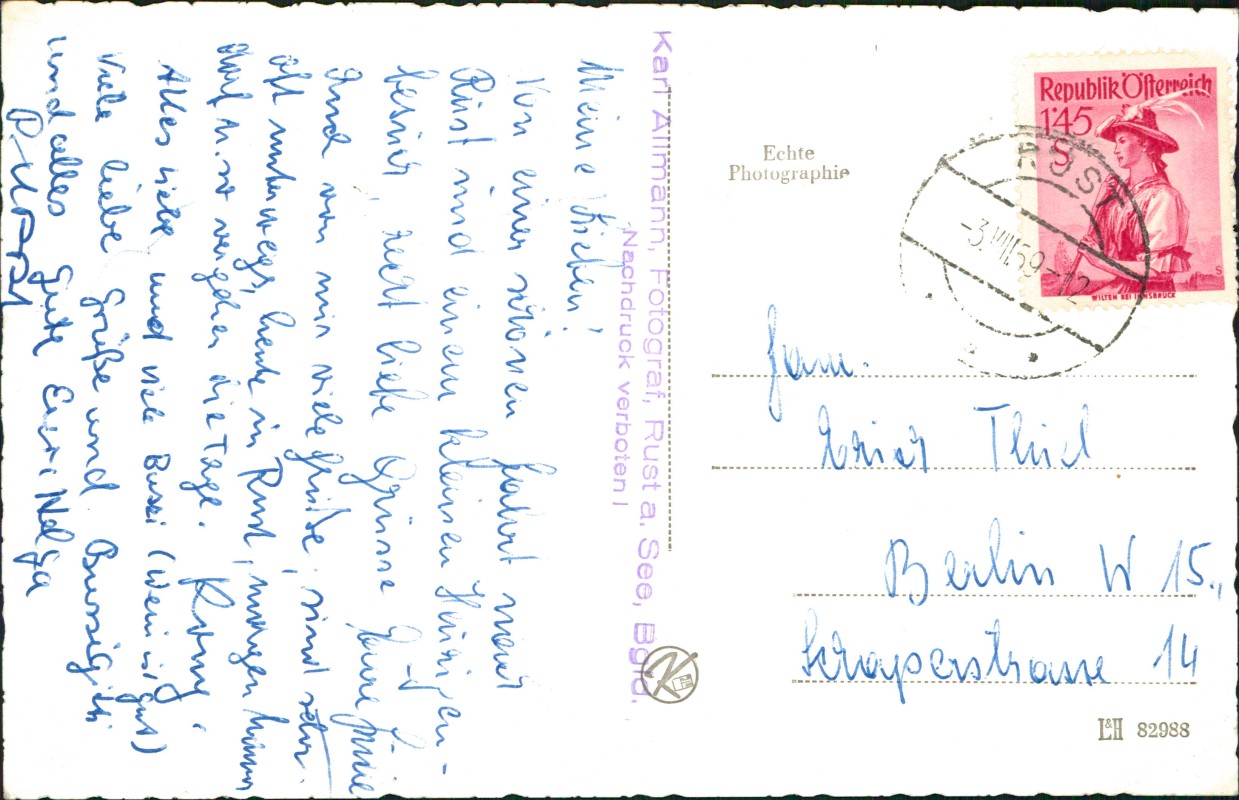 Meine Lieben!
Von einer schönen Fahrt nach
Rust und einem kleinen Heurigen-
besuch recht liebe Grüsse Eure
Auch von mir viele Grüße, sind sehr
oft unterwegs, heute in Rust, morgen
u. so vergehen die Tage.
Alles Liebe und viele Bussi (Wein ist gut)
Viele liebe Grüße und Bussi
und alles Gute Eure Helga
Karl Allmann, Fotograf, Rust a. See, Bgld.
Nachdruck verboten!
Echte
Photographie
Republik Österreich
1'45
S
WILTEN BEI INNSBRUCK
RUST
-3.VIII.59-12
Fam.
Erich Thiel
Berlin W 15.,
Schaperstrasse 14
K
L&H 82988